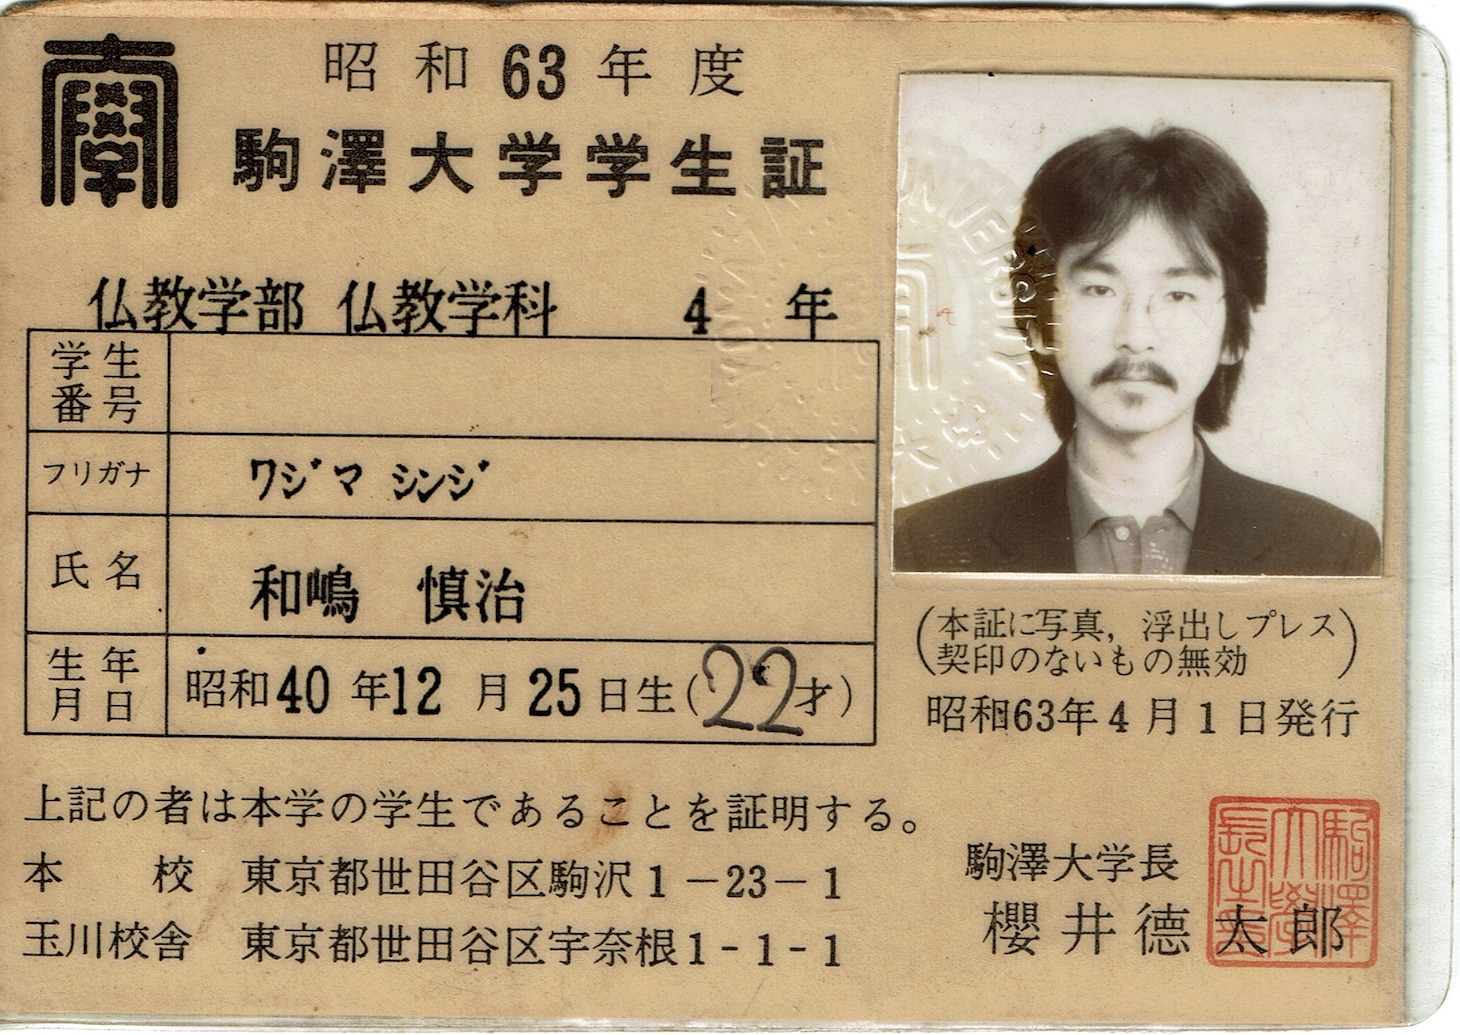 昭和63年度
駒澤大学学生証
仏教学部 仏教学科 4年
学生番号
フリガナ ワジマ シンジ
氏名 和嶋 慎治
生年月日 昭和40年12月25日生(22才)
(本証に写真,浮出しプレス
契印のないもの無効)
昭和63年4月1日発行
上記の者は本学の学生であることを証明する。
本校 東京都世田谷区駒沢1-23-1
玉川校舎 東京都世田谷区宇奈根1-1-1
駒澤大学長
櫻井德太郎
UNIVERSITY